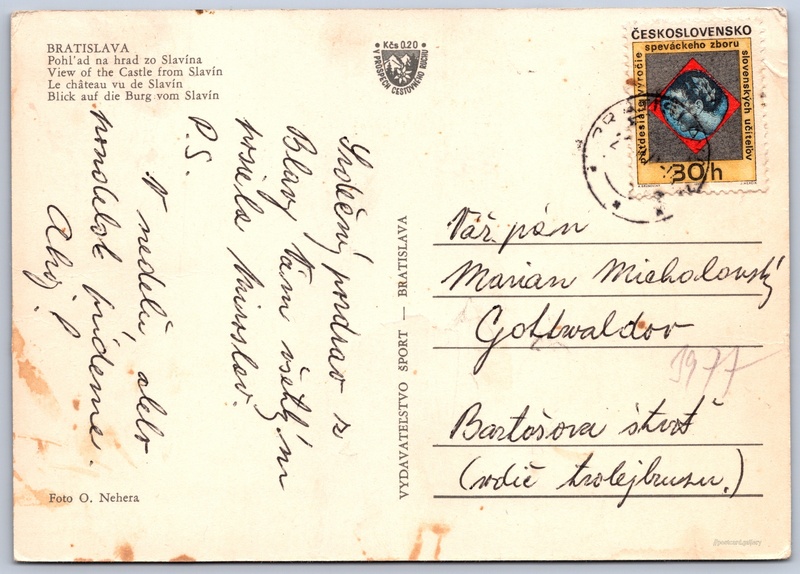 BRATISLAVA
Pohl'ad na hrad zo Slavína
View of the Castle from Slavín
Le château vu de Slavín
Blick auf die Burg vom Slavín
Kčs 0.20
V PROSPECH CESTOVNÉHO RUCHU
ČESKOSLOVENSKO
päťdesiate výročie
speváckeho zboru
slovenských učiteľov
30 h
Srdečný pozdrav z
Blavy Vám všetkým
posiela Miroslav.
P.S.
V nedeľu alebo
pondelok prídeme.
Ahoj!
VYDAVATEĽSTVO ŠPORT — BRATISLAVA
Váž pán
Marian Michalovský
Gottwaldov
1977
Bartošova štvrť
(vodič trolejbusu.)
Foto O. Nehera